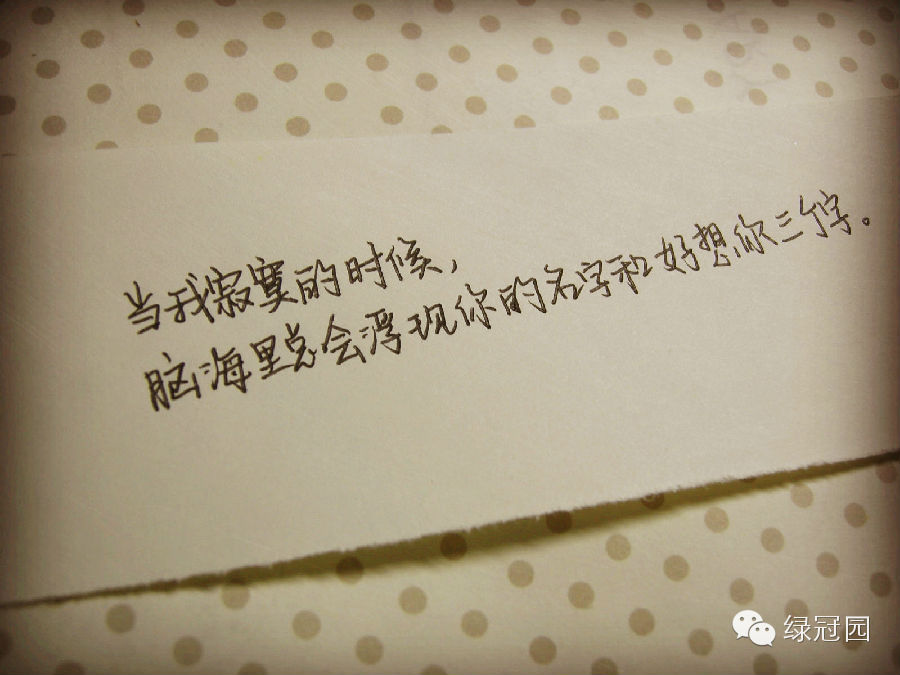 当我寂寞的时候,
脑海里总会浮现你的名字和好想你三个字。
绿冠园